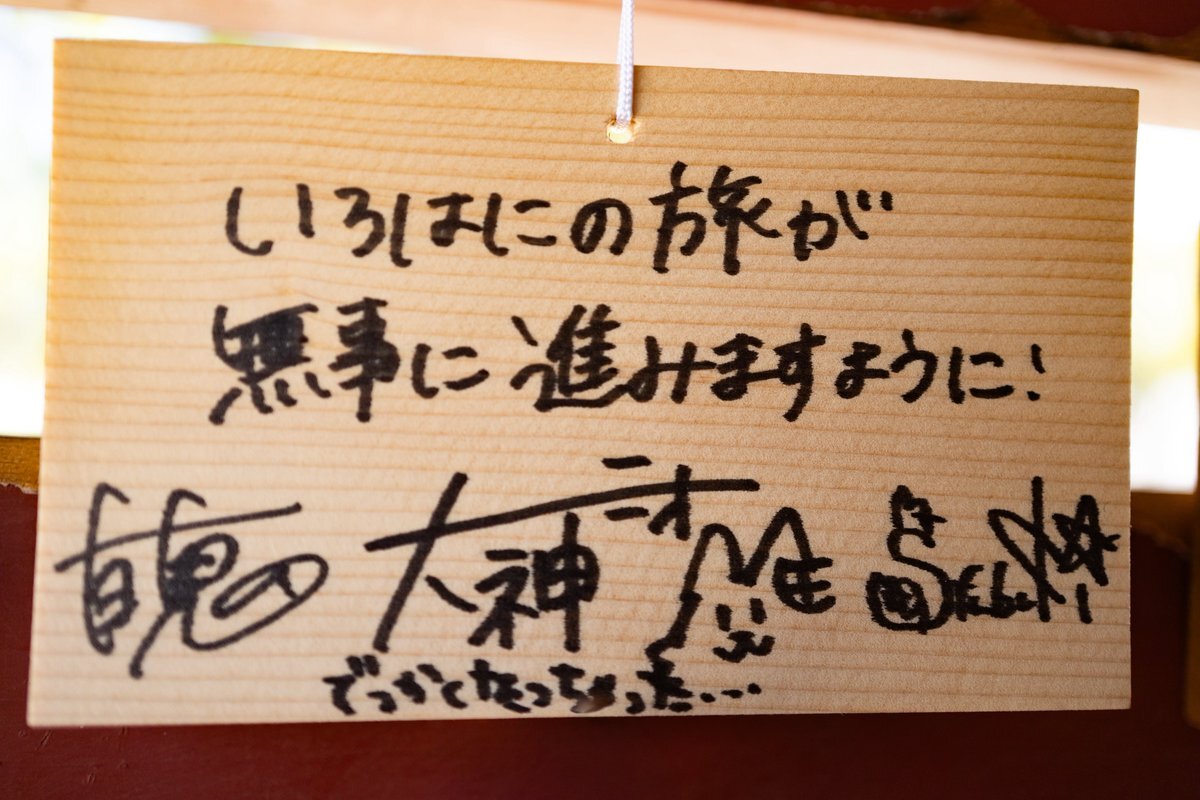 いろはにの旅が
無事に進みますように!
大神
でっかくなっちゃった...